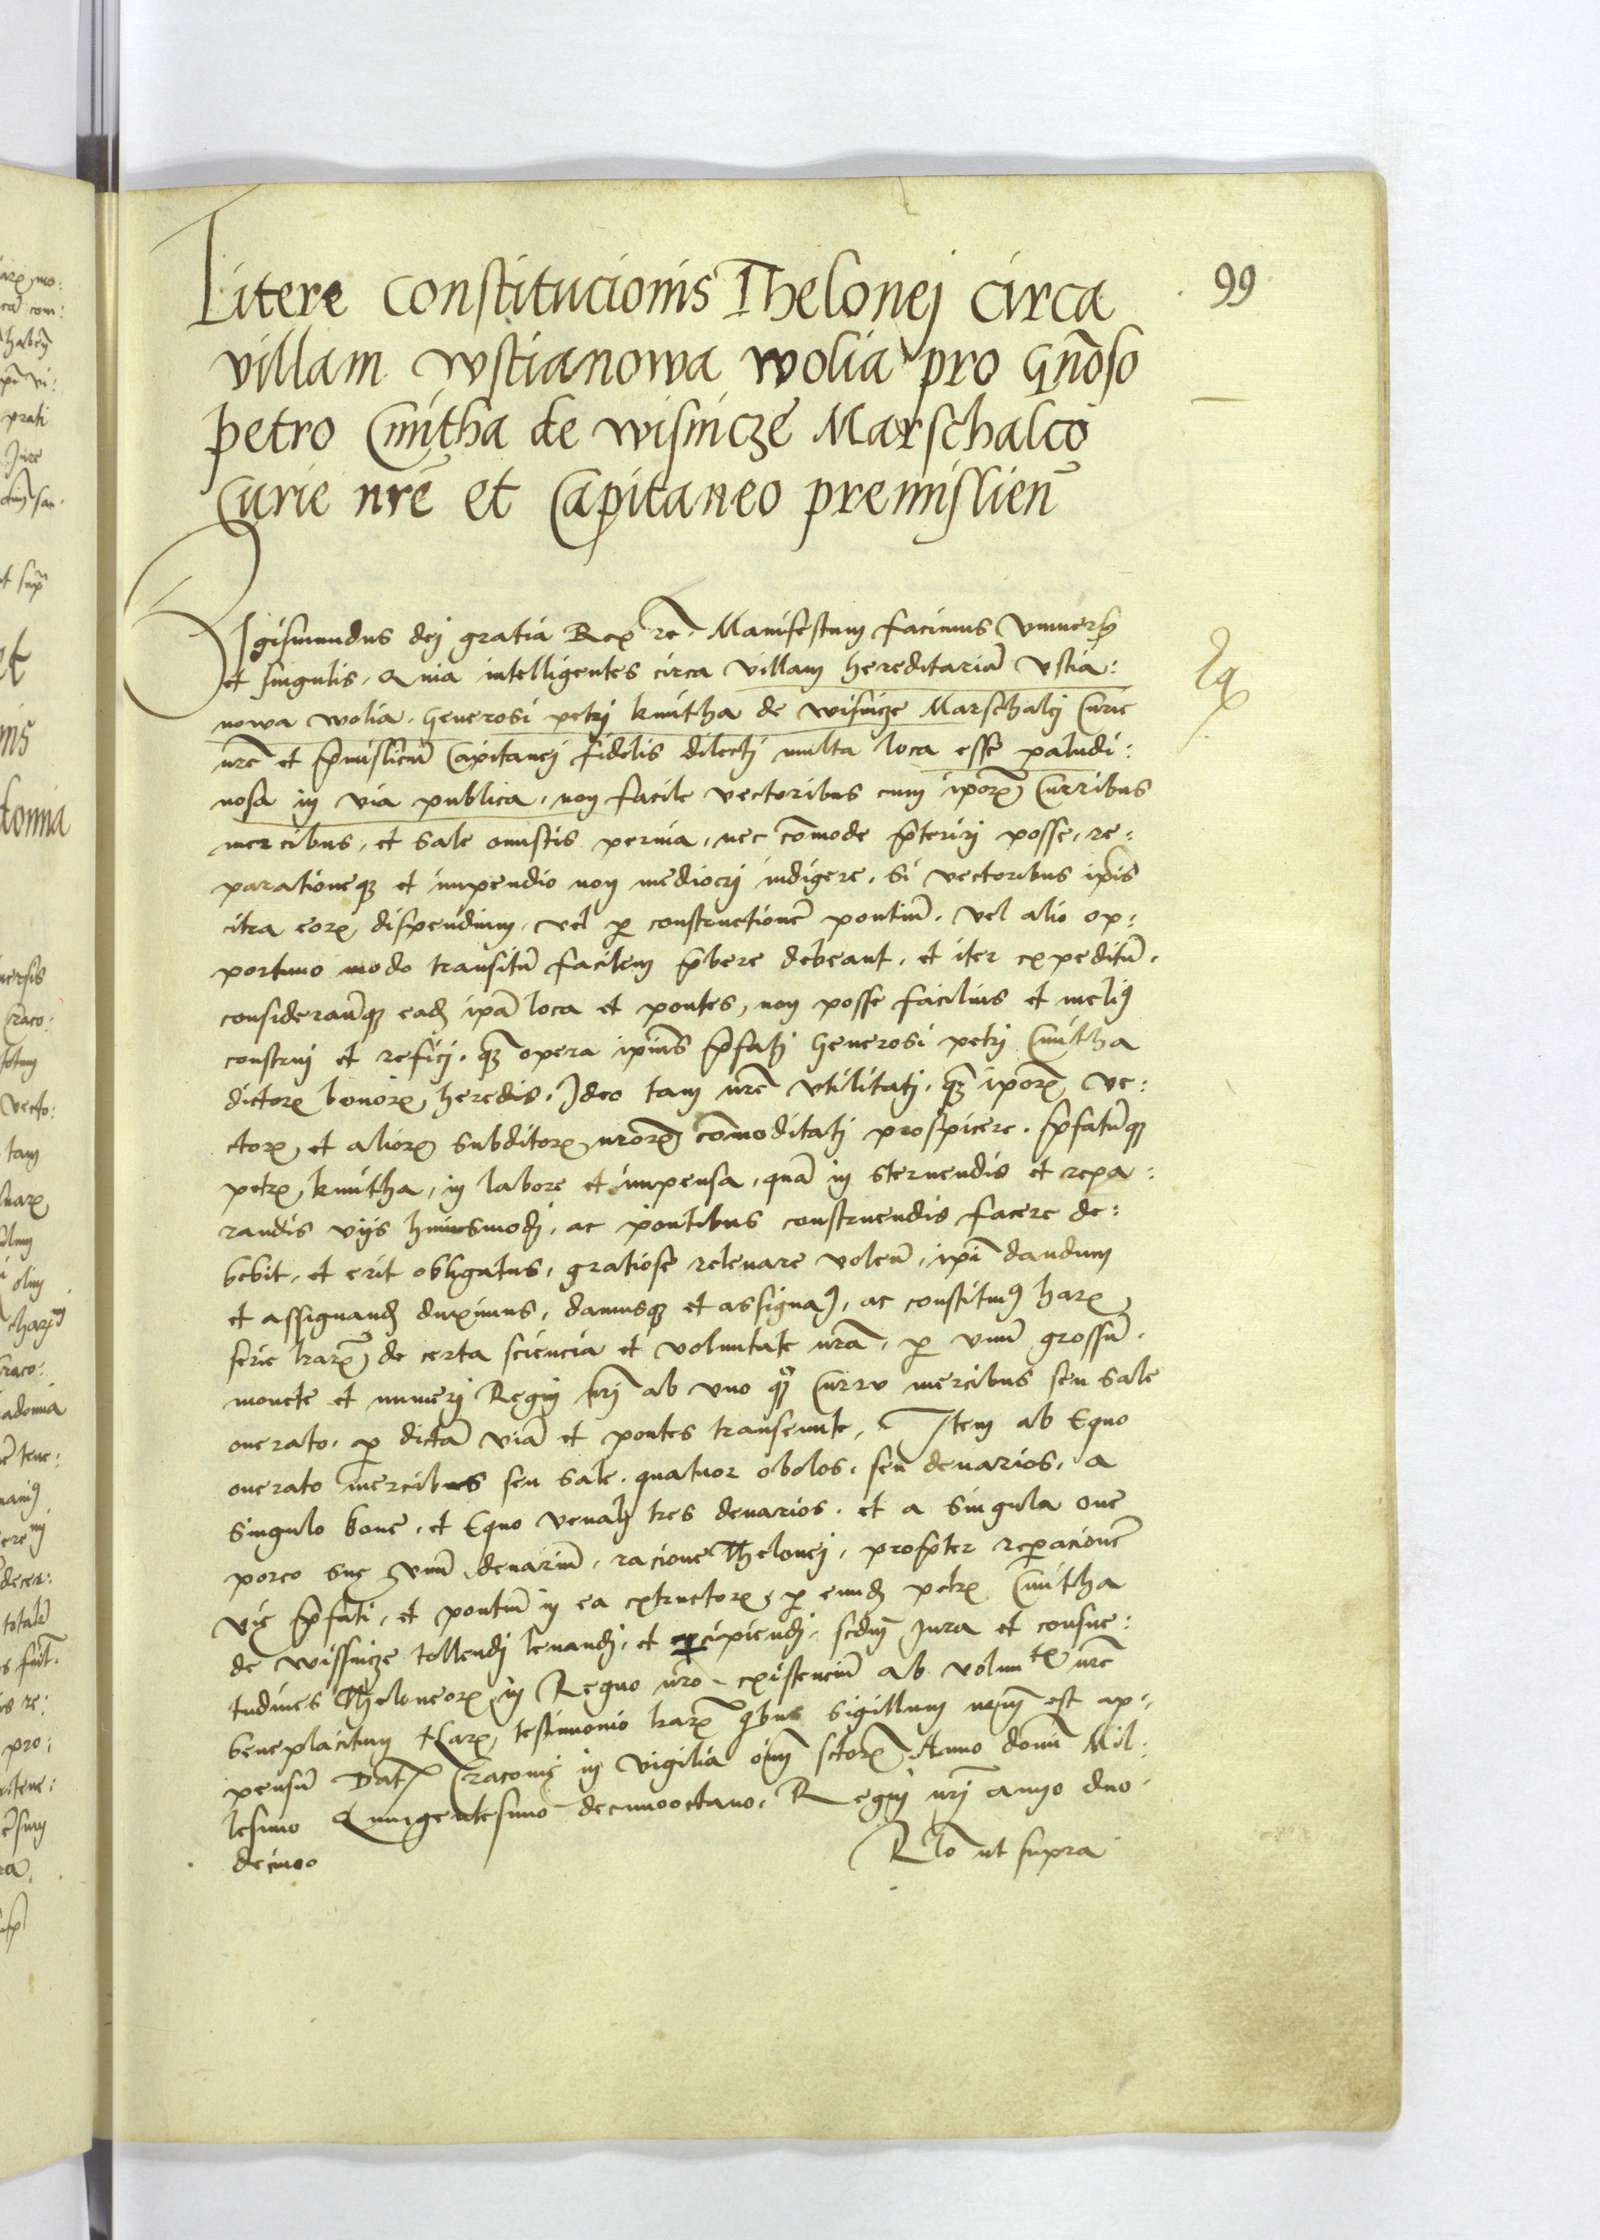 99
Litere constitucionis Thelonej circa
villam wstianowa wolia pro gn̄oso
petro Cmitha de wisnicze Marschalco
Curie nr̄e et Capitaneo premislien̄
Sigismundus dej gratia Rex rc̄. Manifestum facimus Vniuersis
et singulis. Quia intelligentes circa villam hereditariā vstia:
nowa wolia. Generosi petrj kmitha de wisnicze Marschalcj Curie
nr̄e et p̄misliensis Capitanej fidelis dilectj multa loca esse paludi:
nosa in via publica, non facile vectoribus cum ip̄orꝫ Curribus
mercibus, et sale onustis peruia, nec cōmode p̄terirj posse, re:
parationeqꝫ et impendio non mediocrj indigere. Si vectoribus ip̄is
citra eorꝫ dispendium, vel ꝑ constructionē pontiū. Vel alio op:
portuno modo transitū facilem p̄bere debeant, et iter expeditū.
considerantesqꝫ eadē ip̄a loca et pontes, non posse facilius et meliꝰ
construj et reficj. qꝫ opera ip̄ius p̄fatj Generosi petrj Cmitha
dictorꝫ bonorꝫ heredis, Ideo tam nr̄e vtilitatj. qꝫ ip̄orꝫ ve:
ctorꝫ et aliorꝫ subditorꝫ nr̄orꝫ cōmoditatj prospicere. p̄fatūqꝫ
petrꝫ kmitha, in labore et impensa, quā in sternendis et repa:
randis vijs huiusmodj, ac pontibus construendis facere de:
bebit, et erit obligatus, gratiose releuare volen̄, ip̄i dandum
et assignandū duximus, damusqꝫ et assignamꝰ, ac constituimꝰ harꝫ
serie lrārꝫ de certa sciencia et voluntate nr̄a, ꝑ vnū grossū.
monete et numerj Regnj nr̄j ab vno quoqꝫ Curru mercibus seu sale
onerato, ꝑ dictā viā et pontes transeunte, Item ab Equo
onerato mercibus seu sale. quatuor obolos, seu denarios, a
singulo boue, et Equo venalj tres denarios. et a singula oue
porco sue vnū denariū, racione Thelonej, propter reparacionē
vie p̄fati, et pontiū in ea extructorꝫ, ꝑ eundē petrꝫ Cmitha
de wissnicze tollendj leuandj, et ꝑcipiendj, scdm̄ Jura et consue:
tudines Theloneorꝫ in Regno nr̄o existenciū ab volunte nr̄e
beneplacitum Harꝫ, testimonio lrārꝫ qbus sigillum nr̄m est ap:
pensū Datꝫ Cracouie in vigilia oīm sctorꝫ Anno domī Mil:
lesimo Quingentesimo decimooctauo. Regnj nr̄j anno duo
decimo
Rlō ut supra